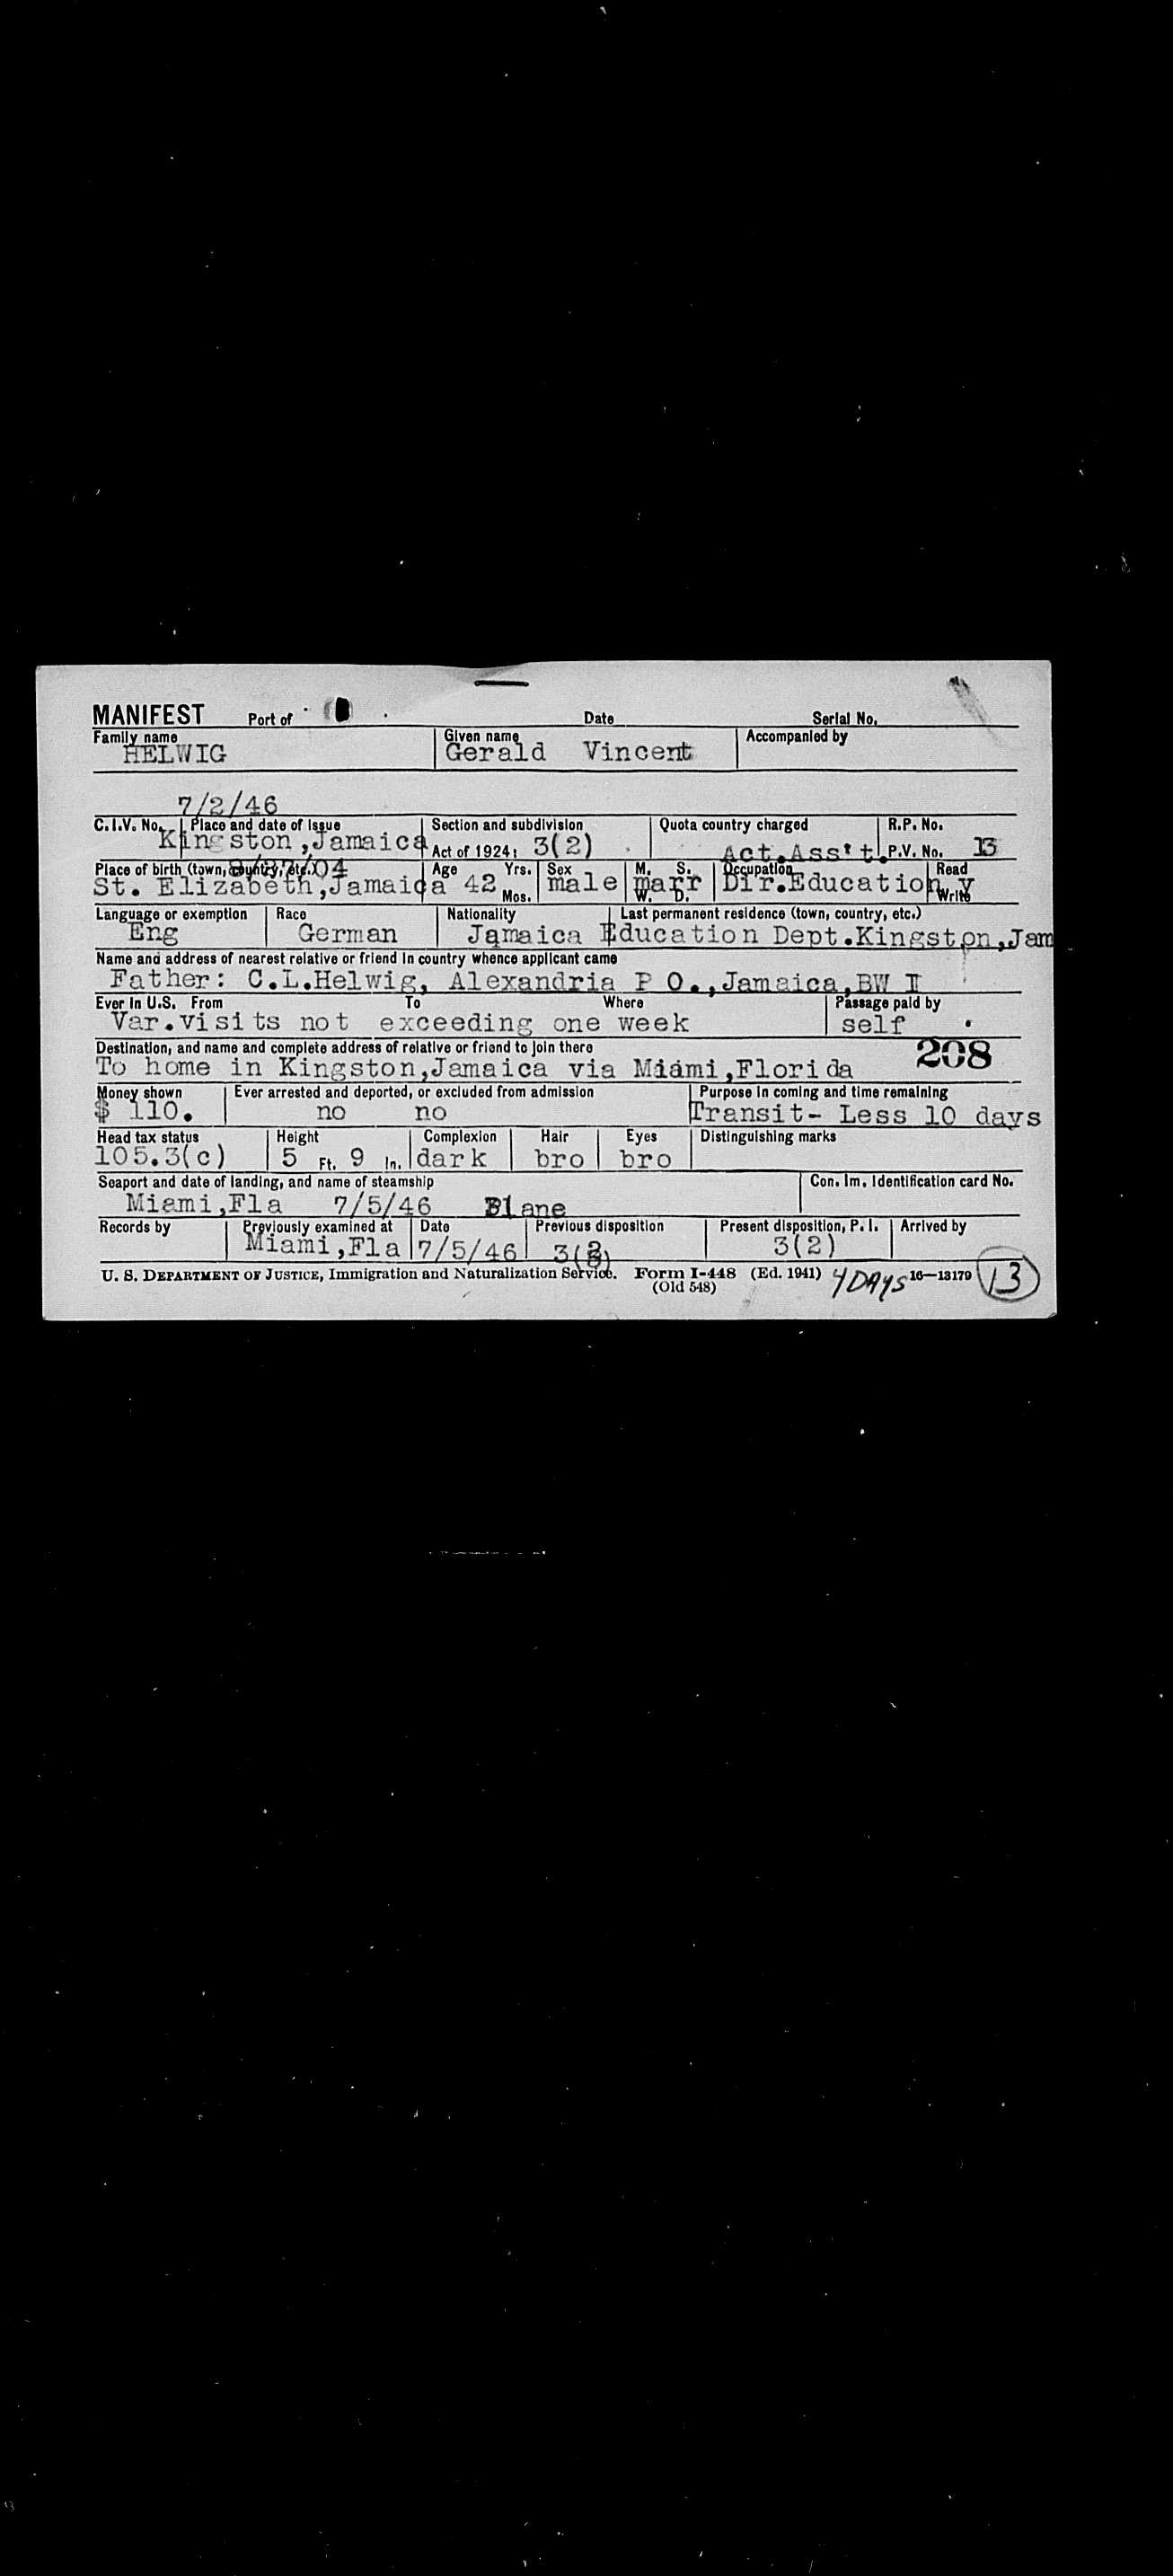 MANIFEST Port of Date Serial No.
Family name Given name Accompanied by
HELWIG Gerald Vincent
7/2/46
C.I.V. No. Place and date of issue Section and subdivision Quota country charged R.P. No.
Kingston,Jamaica Act of 1924: 3(2) Act.Ass't. P.V. No. 13
Place of birth (town, country, etc.) Age Yrs. Sex M. S. Occupation Read
St. Elizabeth,Jamaica 42 Mos. male marr W. D. Dir.Education y Write
Language or exemption Race Nationality Last permanent residence (town, country, etc.)
Eng German Jamaica Education Dept.Kingston,Jam
Name and address of nearest relative or friend in country whence applicant came
Father: C.L.Helwig, Alexandria P O.,Jamaica,BW I
Ever in U.S. From To Where Passage paid by
Var.visits not exceeding one week self
Destination, and name and complete address of relative or friend to join there 208
To home in Kingston,Jamaica via Miami,Florida
Money shown Ever arrested and deported, or excluded from admission Purpose in coming and time remaining
$ 110. no no Transit- Less 10 days
Head tax status Height Complexion Hair Eyes Distinguishing marks
105.3(c) 5 Ft. 9 In. dark bro bro
Seaport and date of landing, and name of steamship Con. Im. Identification card No.
Miami,Fla 7/5/46 Plane
Records by Previously examined at Date Previous disposition Present disposition, P. I. Arrived by
Miami,Fla 7/5/46 3(2) 3(2)
U. S. DEPARTMENT OF JUSTICE, Immigration and Naturalization Service. Form I-448 (Ed. 1941) 4 DAYS 16—13179 13
(Old 548)